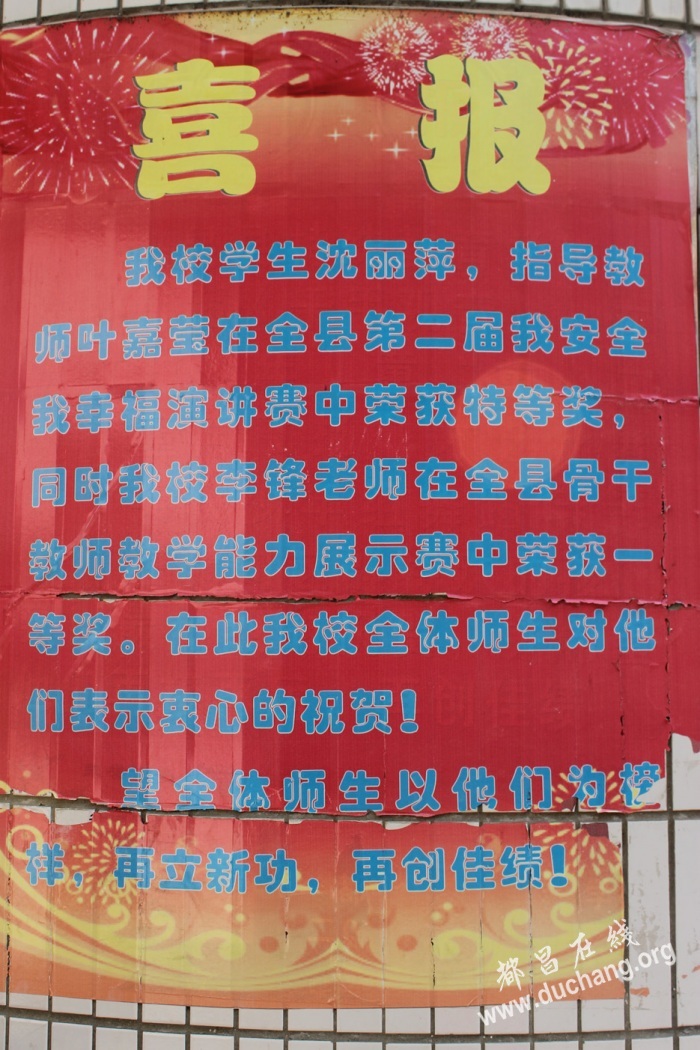 喜报
我校学生沈丽萍，指导教
师叶嘉莹在全县第二届我安全
我幸福演讲赛中荣获特等奖，
同时我校李锋老师在全县骨干
教师教学能力展示赛中荣获一
等奖。在此我校全体师生对他
们表示衷心的祝贺！
望全体师生以他们为榜
样，再立新功，再创佳绩！
都昌在线
www.duchang.org